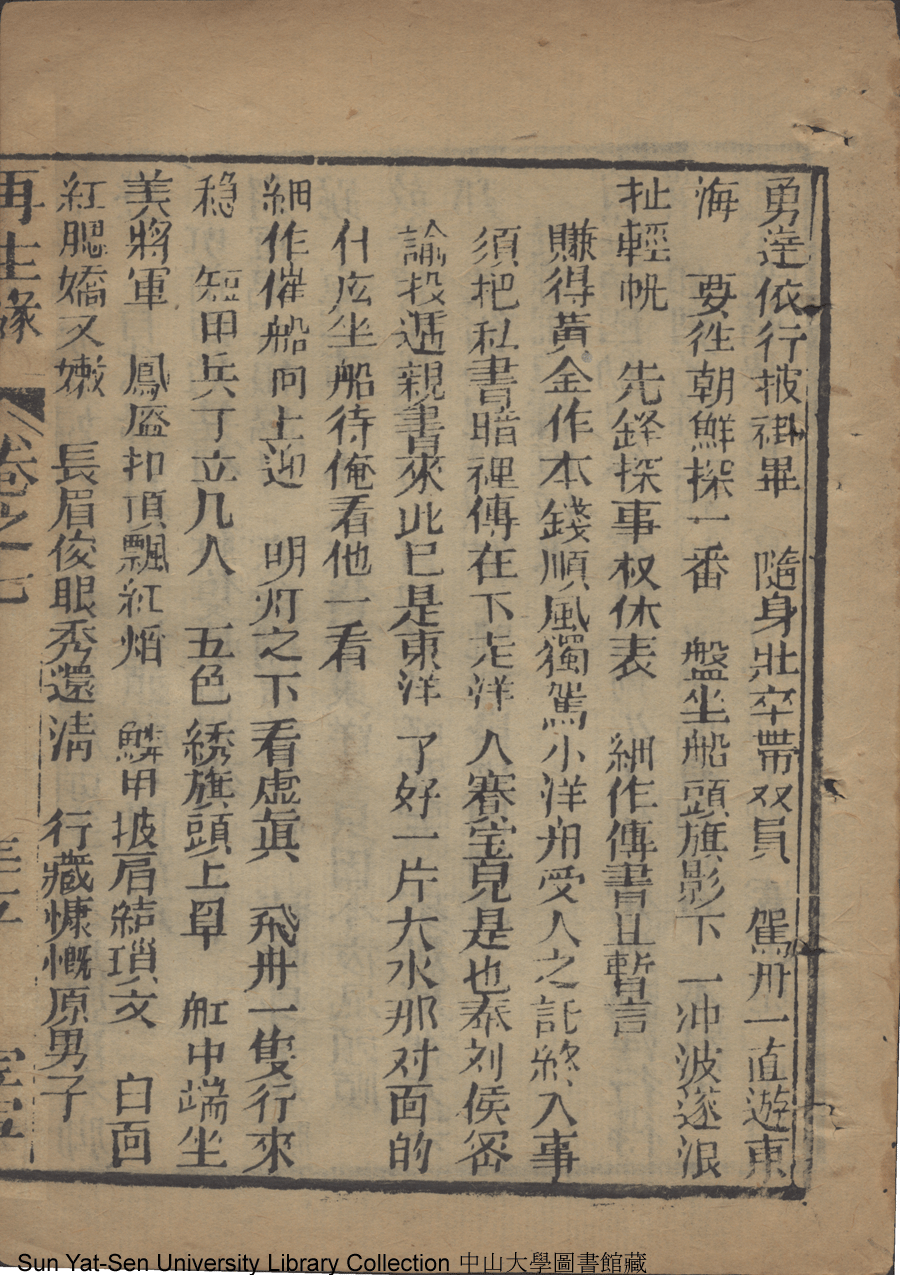 勇達依行披褂畢　隨身壯卒帶双員　駕舟一直遊東
海　要徃朝鮮探一番　盤坐船頭旗影下　一冲波逐浪
扯輕帆　先鋒探事权休表　細作傳書且暫言
賺得黃金作本錢順風獨駕小洋舟受人之託終人事
須把私書暗裡傳在下走洋人賽宝見是也奉刘侯密
諭投遞親書來此巳是東洋了好一片大水那对面的
什庅坐船待俺看他一看
細作催船向上迎　明灯之下看虛眞　飛舟一隻行來
稳　短甲兵丁立几人　五色綉旗頭上阜　舡中端坐
美將軍　鳳盔扣頂飄紅焰　鱗甲披肩結瑣文　白面
紅腮嬌又嫩　長眉俊眼秀還淸　行藏慷慨原男子
再生緣　卷之十七
Sun Yat-Sen University Library Collection 中山大學圖書館藏